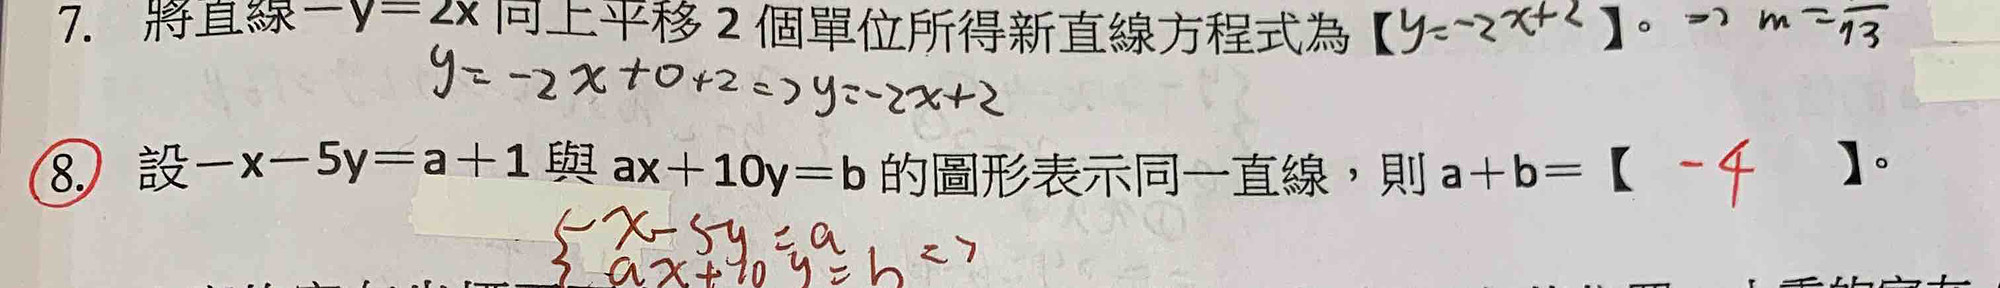 7. 將直線－y＝2x 向上平移 2 個單位所得新直線方程式為【y=-2x+2】。 => m = 13
y= -2x+0+2=>y=-2x+2
8. 設－x－5y＝a＋1 與 ax＋10y＝b 的圖形表示同一直線，則 a＋b＝【 -4 】。
{-x-5y=a
ax+10y=b =>